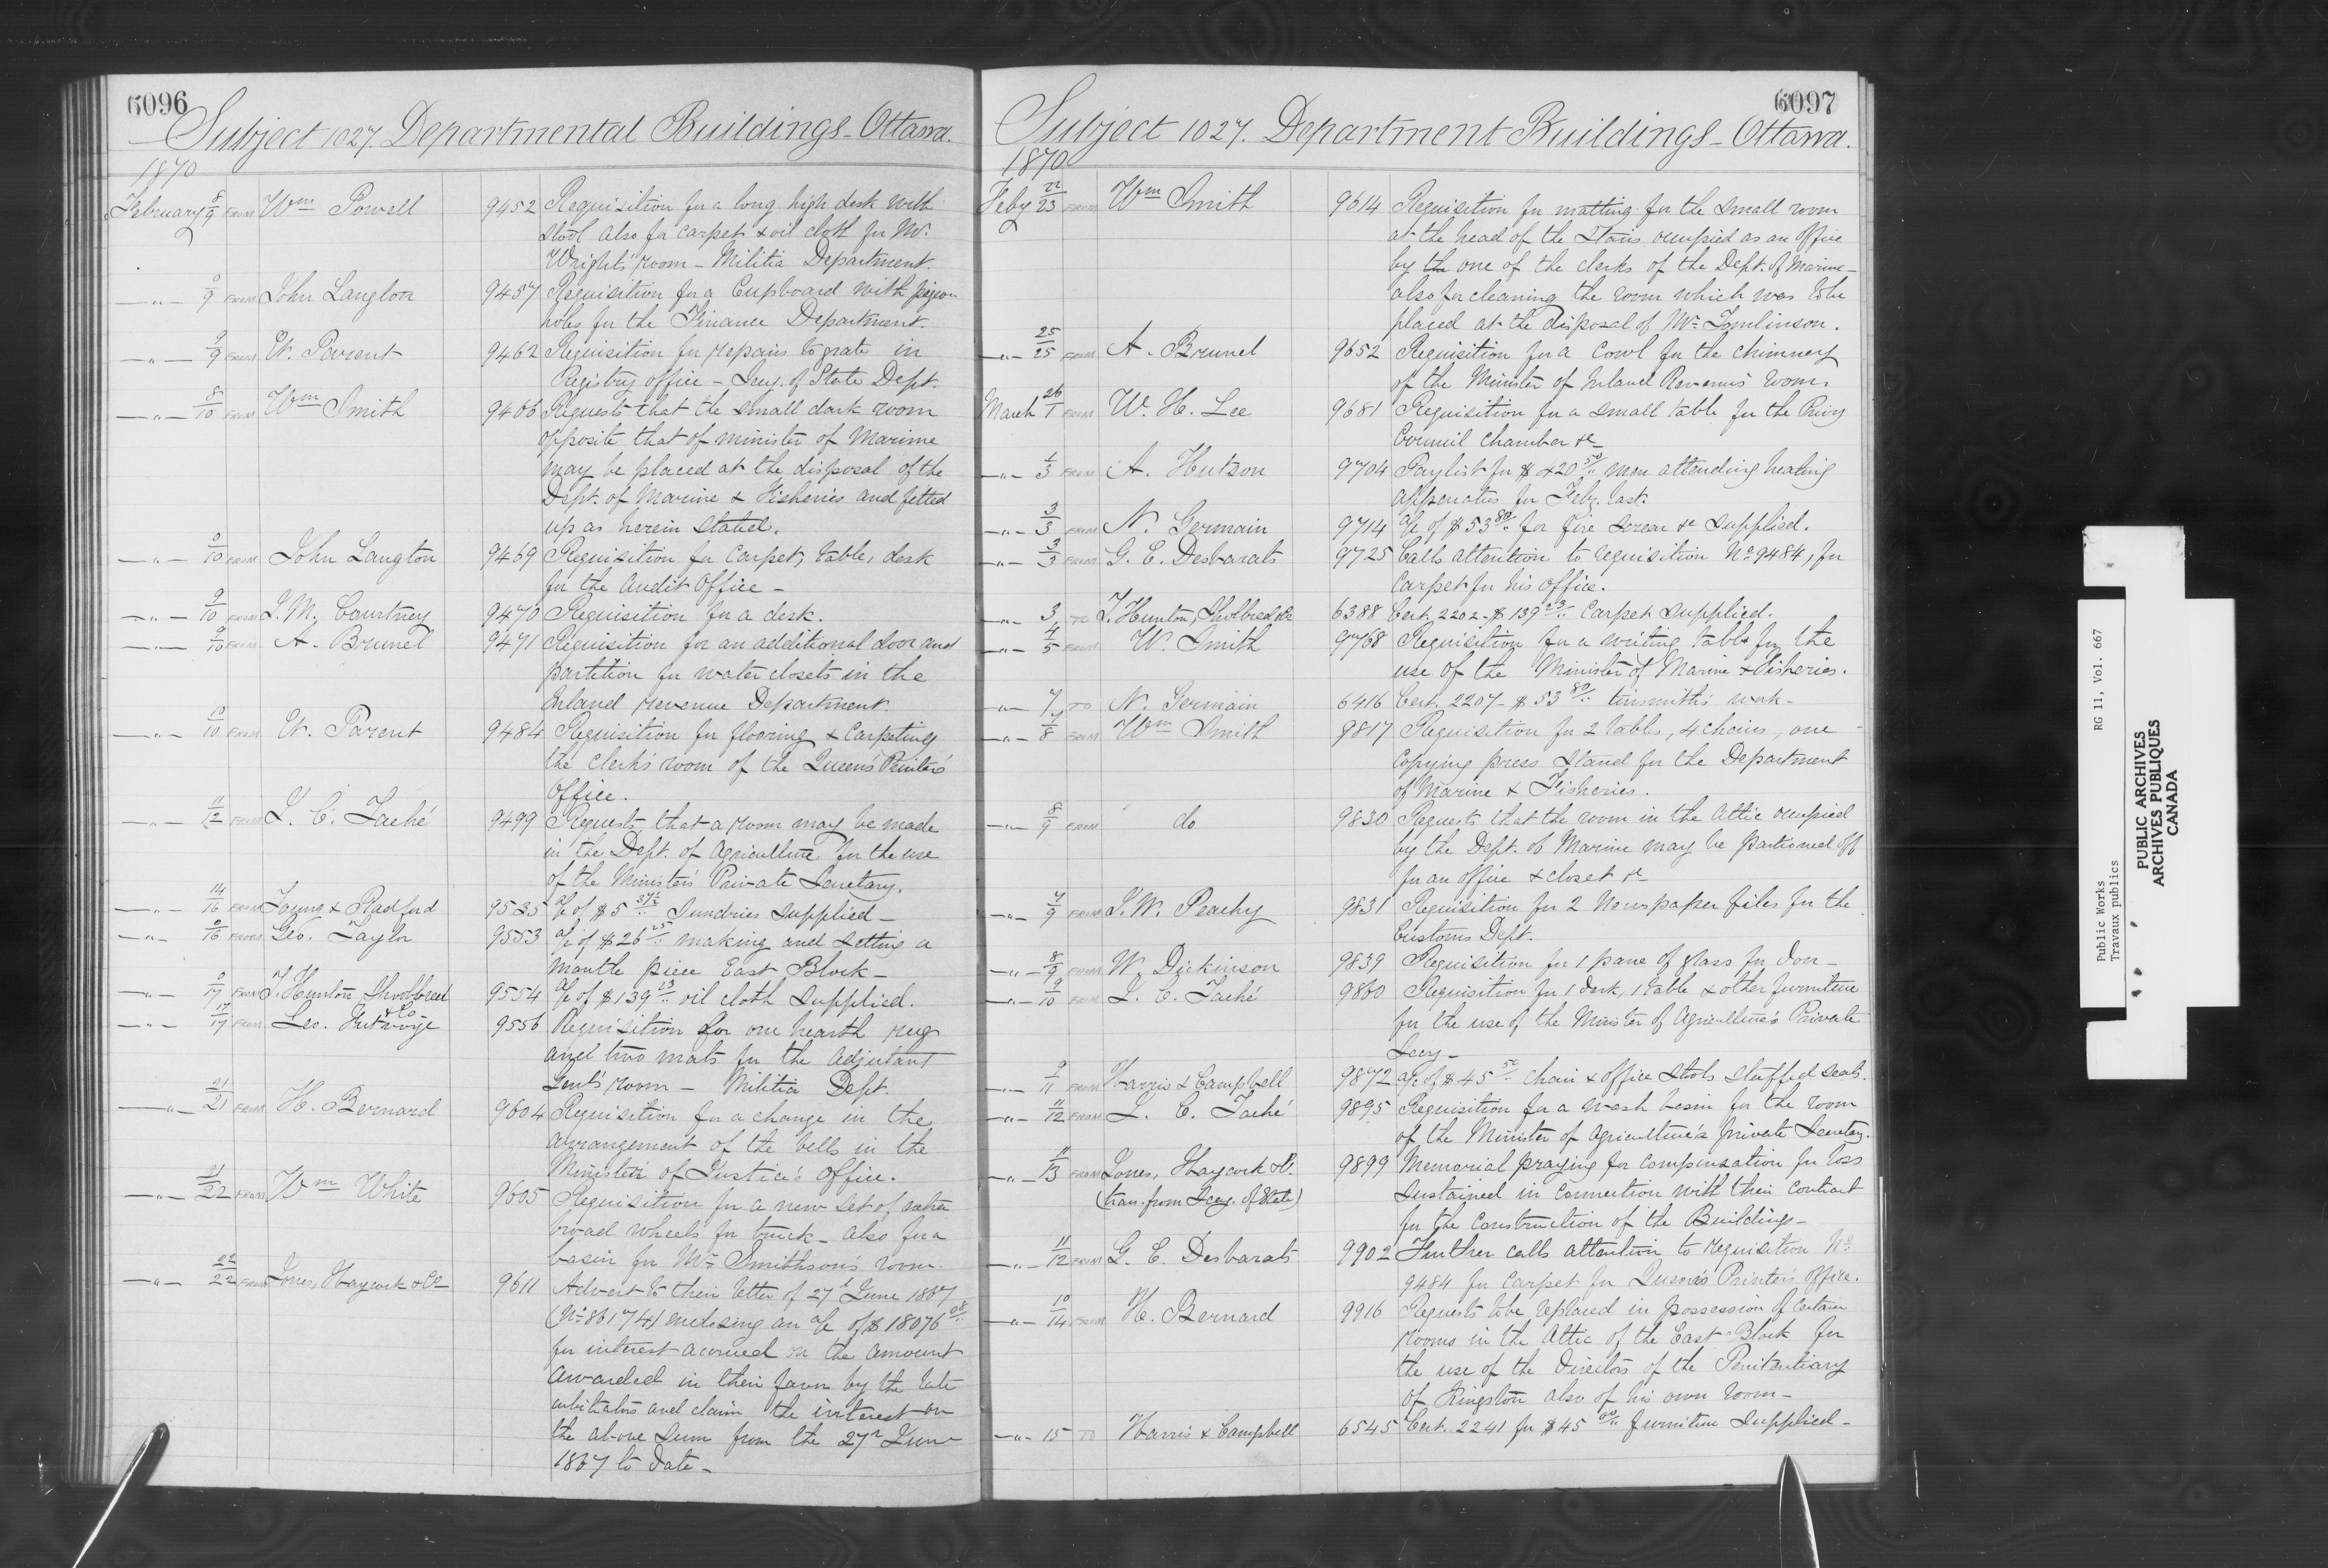 6096
Subject 1027. Departmental Buildings - Ottawa.
1870
February 8/9 FROM Wm Powell 9452 Requisition for a long high desk with
stool also for carpet & oil cloth for Mr.
Wright's room - Militia Department.
-"- 9 FROM John Langton 9457 Requisition for a Cupboard with pigeon
holes for the Finance Department.
-"- 9/9 FROM E. Parent 9462 Requisition for repairs to grate in
Registry office - Secy. of State Dept.
-"- 8/10 FROM Wm Smith 9466 Requests that the small dark room
opposite that of minister of Marine
may be placed at the disposal of the
Dept. of Marine & Fisheries and fitted
up as herein stated.
-"- 10 FROM John Langton 9469 Requisition for Carpet, table, desk
for the Audit Office -
-"- 9/10 FROM J. M. Courtney 9470 Requisition for a desk.
-"- 9/10 FROM A. Brunel 9471 Requisition for an additional door and
partition for water closets in the
Inland revenue Department.
-"- 10/10 FROM E. Parent 9484 Requisition for flooring & Carpeting
the clerk's room of the Queen's Printer's
Office.
-"- 11/12 FROM J. C. Taché 9499 Requests that a room may be made
in the Dept. of Agriculture for the use
of the Minister's Private Secretary.
-"- 14/16 FROM Young & Radford 9535 a/c of $5 37½ Sundries Supplied -
-"- 16 FROM Geo. Taylor 9553 a/c of $26 25 making and setting a
mantle piece East Block -
-"- 17 FROM T. Hunton Shoolbred & Co 9554 a/c of $139 23 oil cloth supplied.
-"- 17/17 FROM Geo. Futvoye 9556 Requisition for one hearth rug
and two mats for the Adjutant
Genl's room - Militia Dept.
-"- 21/21 FROM H. Bernard 9604 Requisition for a change in the
arrangement of the bells in the
Minister of Justice's Office.
-"- 21/22 FROM Wm White 9605 Requisition for a new set of extra
broad wheels for truck - also for a
basin for Mr. Smithson's room.
-"- 22/22 FROM Jones, Haycock & Co 9611 Advert to their letter of 27 June 1867
(No 86174) enclosing an a/c of $18076 08
for interest accrued on the amount
awarded in their favor by the late
arbitrators and claim the interest on
the above sum from the 27 June
1867 to date -
6097
Subject 1027. Department Buildings - Ottawa.
1870
Feby 22/23 FROM Wm Smith 9614 Requisition for matting for the small room
at the head of the stairs occupied as an office
by the one of the clerks of the Dept. of Marine -
also for cleaning the room which was to be
placed at the disposal of Mr. Tomlinson.
-"- 25/25 FROM A. Brunel 9652 Requisition for a Cowl for the chimney
of the Minister of Inland Revenue's room.
March 26/1 FROM W. H. Lee 9681 Requisition for a small table for the Privy
Council Chamber &c
-"- 1/3 FROM A. Hutson 9704 Paylist for $420 50 men attending heating
apparatus for Feby. last.
-"- 3/3 FROM N. Germain 9714 a/c of $53 80 for fire screen &c supplied.
-"- 3/3 FROM G. E. Desbarats 9725 Calls attention to requisition No 9484, for
Carpet for his office.
-"- 3 TO T. Hunton, Shoolbred & Co 6388 Cert. 2202. $139 23 Carpet supplied.
-"- 4/5 FROM W. Smith 9768 Requisition for a writing table for the
use of the Minister of Marine & Fisheries.
-"- 7 TO N. Germain 6416 Cert. 2207 - $53 80 tinsmith's work -
-"- 7/8 FROM Wm Smith 9817 Requisition for 2 tables, 4 chairs, one
Copying press stand for the Department
of Marine & Fisheries.
-"- 8/9 FROM do 9830 Requests that the room in the Attic occupied
by the Dept. of Marine may be partioned off
for an office & closet &c
-"- 7/9 FROM J. W. Peachy 9831 Requisition for 2 Newspaper files for the
Customs Dept.
-"- 8/9 FROM W. Dickinson 9839 Requisition for 1 pane of glass for door -
-"- 9/10 FROM J. C. Taché 9860 Requisition for 1 desk, 1 table & other furniture
for the use of the Minister of Agriculture's Private
Secy -
-"- 9/11 FROM Harris & Campbell 9872 a/c of $45 50 chair & office stools stuffed seats.
-"- 11/12 FROM J. C. Taché 9895 Requisition for a wash basin for the room
of the Minister of Agriculture's private Secretary.
-"- 11/13 FROM Jones, Haycock & Co. 9899 Memorial praying for compensation for loss
(tran. from Secy. of State) sustained in connection with their contract
for the Construction of the Buildings -
-"- 11/12 FROM G. E. Desbarats 9902 Further calls attention to requisition No
9484 for Carpet for Queen's Printer's Office.
-"- 10/14 FROM H. Bernard 9916 Requests to be replaced in possession of certain
rooms in the Attic of the East Block for
the use of the Directors of the Penitentiary
of Kingston also of his own room -
-"- 15 TO Harris & Campbell 6545 Cert. 2241 for $45 00 furniture supplied -
Public Works
Travaux publics
RG 11, Vol. 667
PUBLIC ARCHIVES
ARCHIVES PUBLIQUES
CANADA